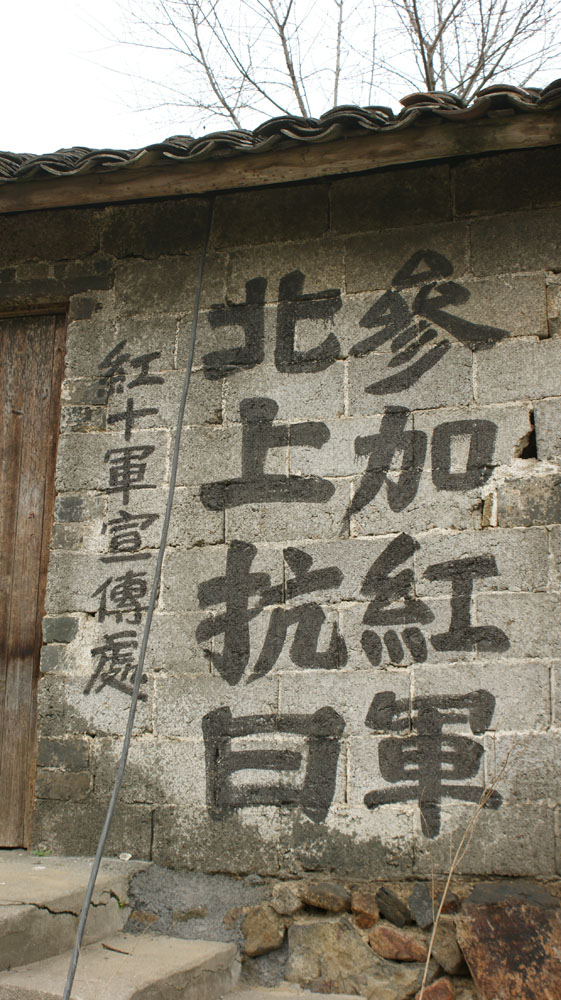 參加紅軍
北上抗日
紅十軍宣傳處